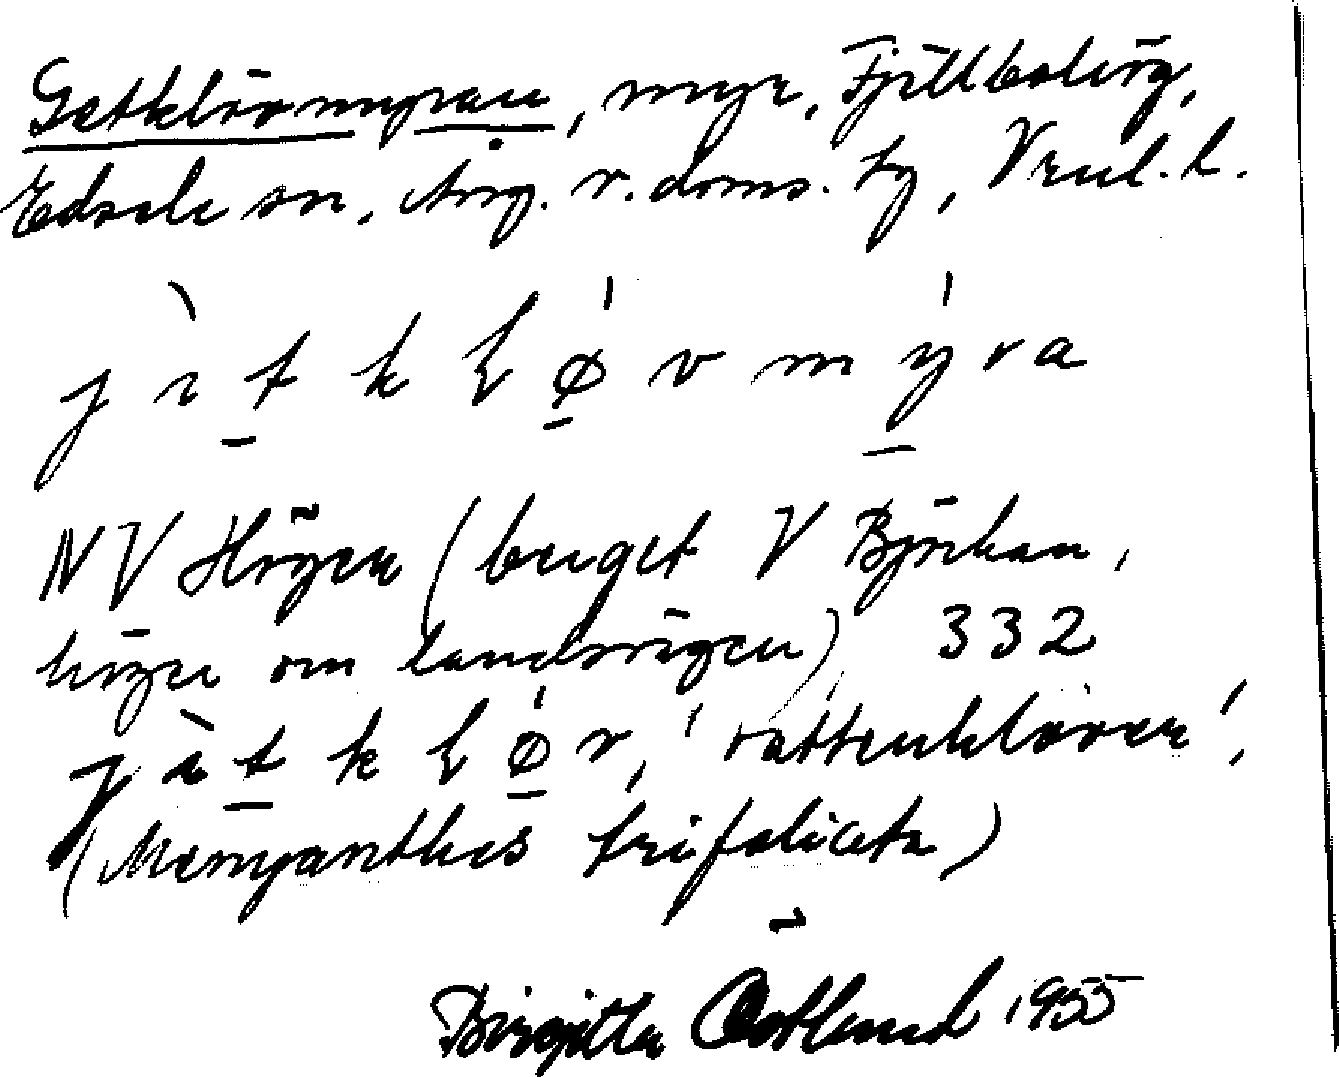 Getklövmyran, myr, Fjällbohög,
Edsele sn, Ång. v. doms. tg, Vrnl. l.
j ä t k ɽ ø v m y r a
NV Högen (berget V Björkan,
höger om landsvägen) 332
j ä t k ɽ ø v, 'vattenklöver',
(Menyanthes trifoliata)
Birgitta Östlund 1955